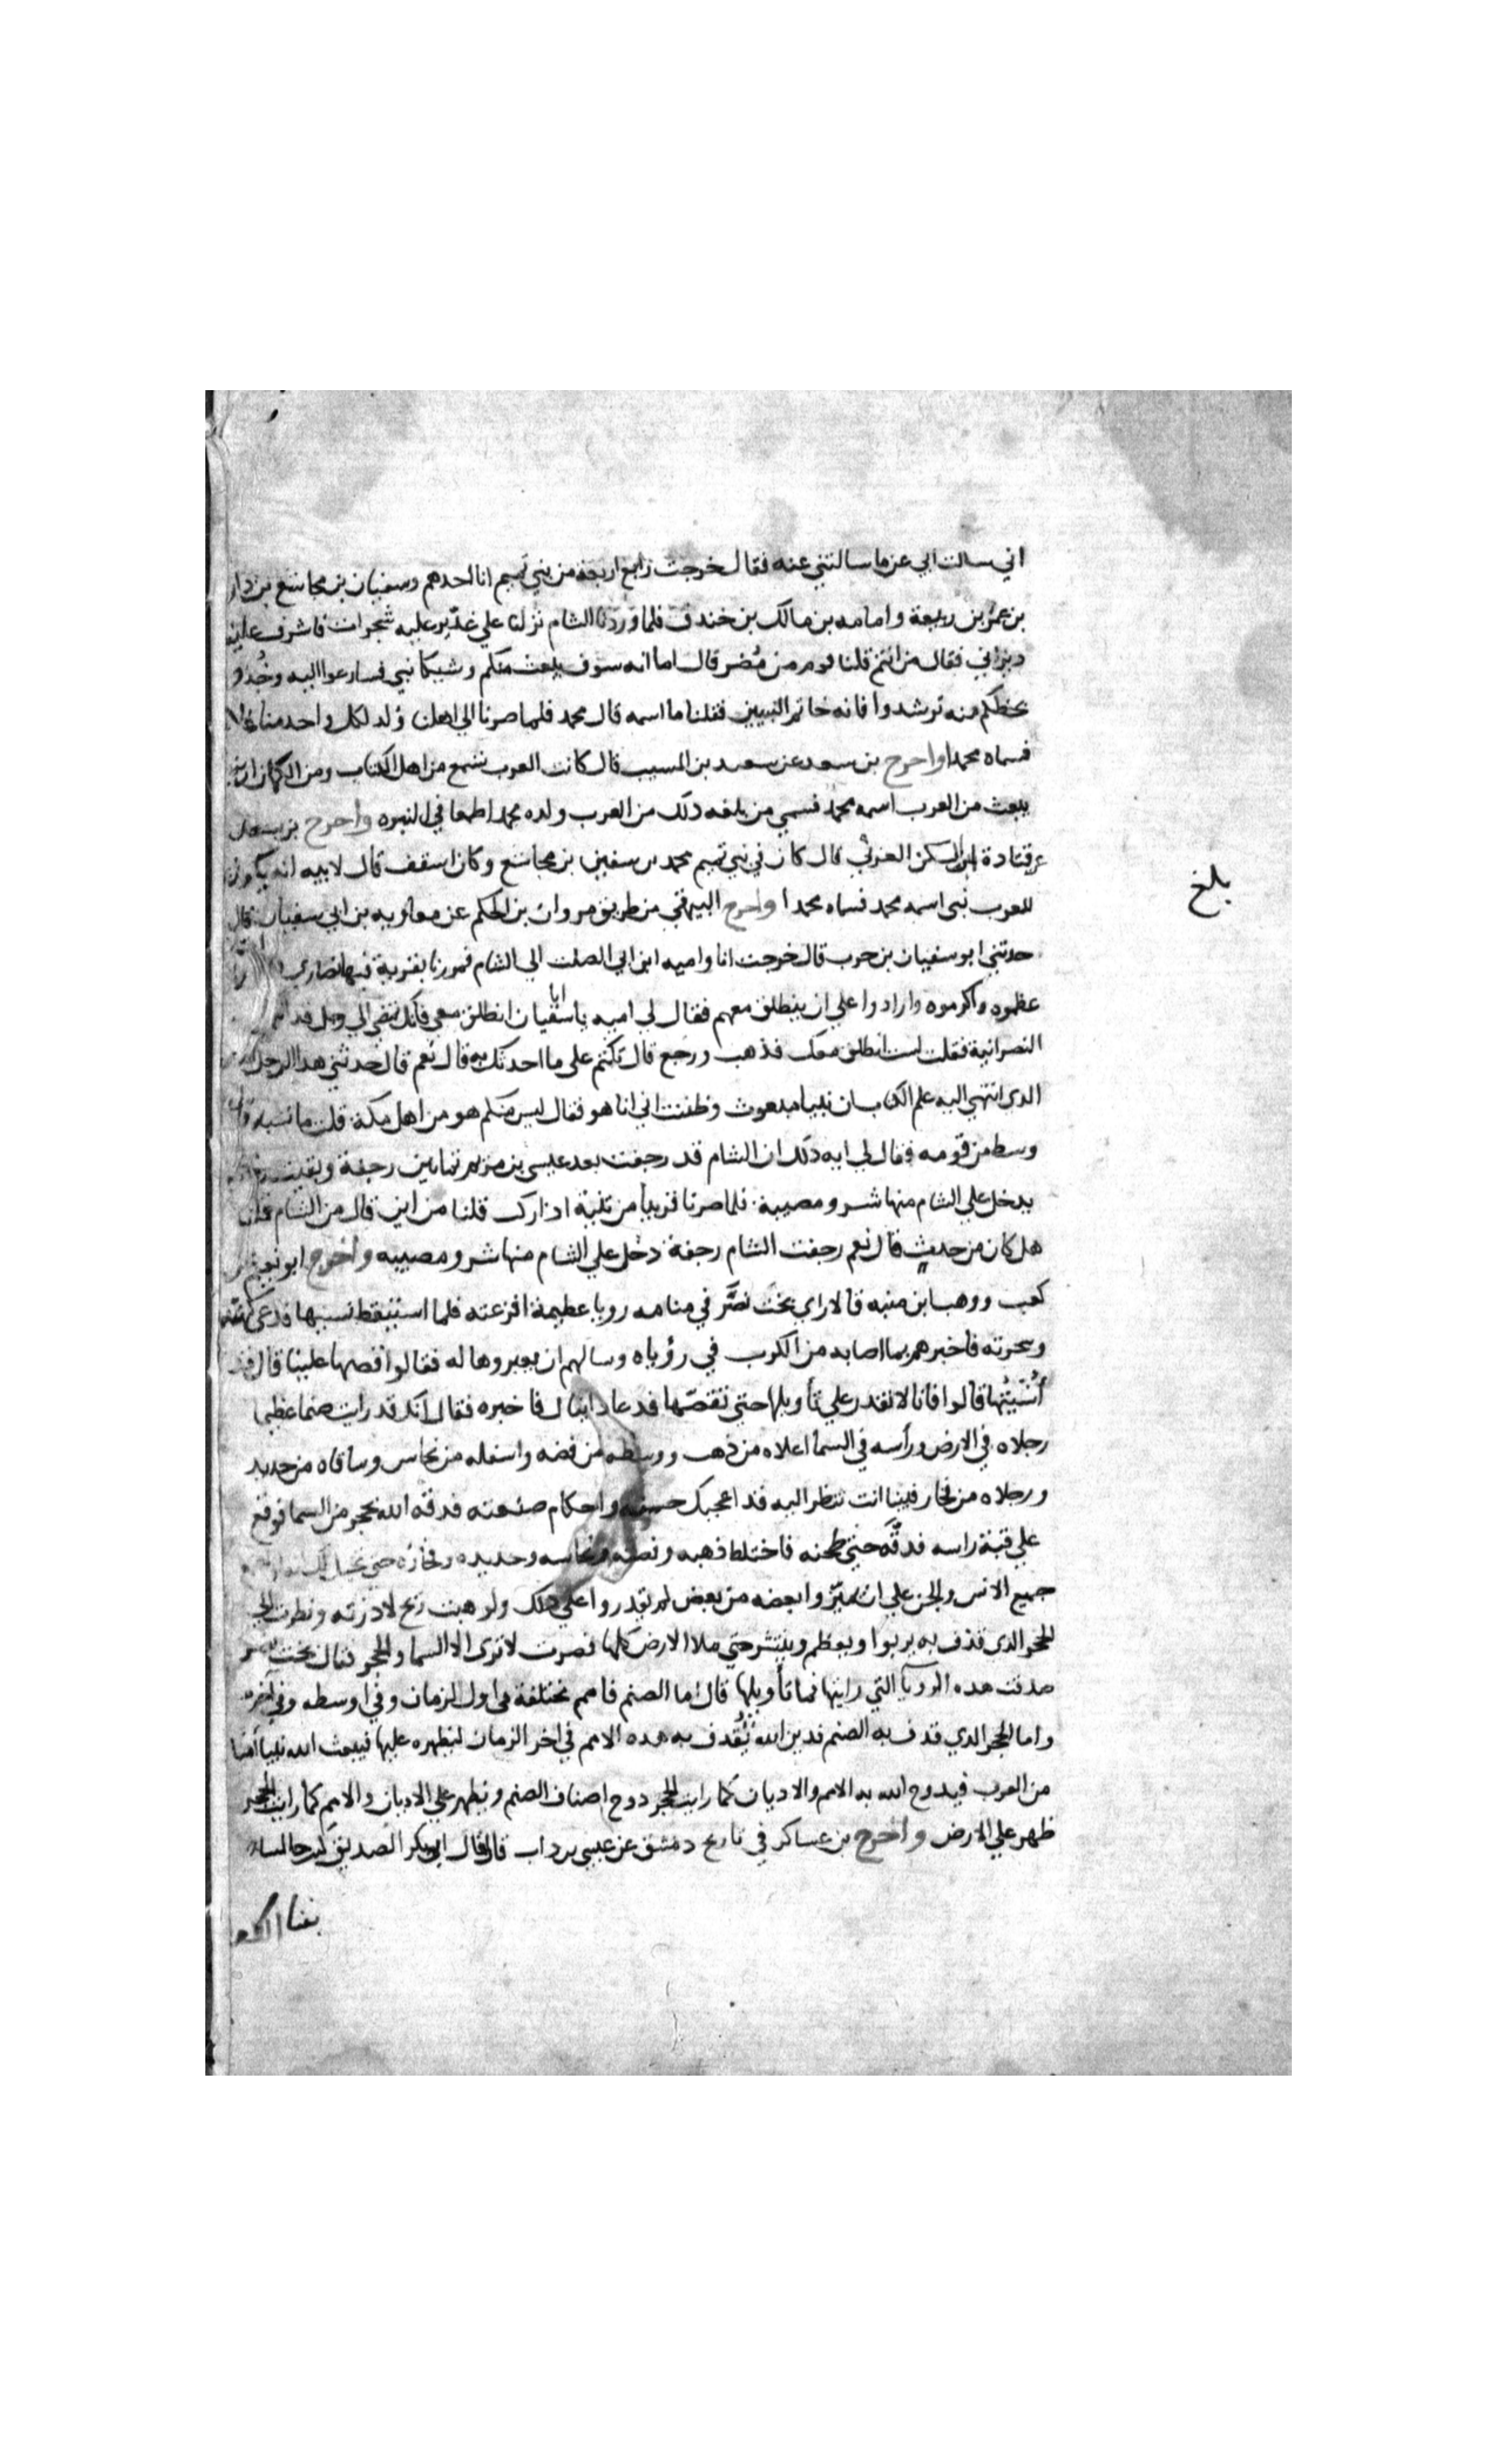 اني سالت ابي عن ما سالتني عنه فقال خرجت رابع اربعة من بني تميم انا احدهم وسفيان بن مجاشع بن دار
بن عمر بن ربيعة وامامه بن مالك بن خندف فلما وردنا الشام نزلنا علي غدير عليه شجرات فاشرف علينا
ديراني فقال من انتم قلنا قوم من مُضر قال اما انه سوف يبعث منكم وشيكا نبي فسارعوا اليه وخُذو
بحظكم منه ترشدوا فانه خاتم النبيين فقلنا ما اسمه قال محمد فلما صرنا الي اهلنا وُلد لكل واحد منا
فسماه محمدا واخرج بن سعد عن سعيد بن المسيب قال كانت العرب تسمع من اهل الكتاب ومن الكهان ان
يبعث من العرب اسمه محمد فسمي من بلغه ذلك من العرب ولده محمد اطمعا في النبوه واخرج بن سعد
عن قتادة ابن السكن العرني قال كان في بني تميم محمد بن سفين بن مجاشع وكان اسقف قال لابيه انه يكون
للعرب نبي اسمه محمد فسماه محمدا واخرج البيهقي من طريق مروان بن الحكم عن معاويه بن ابي سفيان قال
حدثني ابو سفيان بن حرب قال خرجت انا واميه ابن ابي الصلت الي الشام فمررنا بقرية فيها نصاري
عظموه واكرموه وارادوا علي ان ينطلق معهم فقال لي اميه يا ابا سفيان انطلق معي فانك تمضي الي
النصرانية فقلت لست انطلق معك فذهب ورجع قال تكتم علي ما احدثك به قال نعم قال حدثني هذا الرجل
الذي انتهي اليه علم الكتاب ان نبيا مبعوث وظننت اني انا هو فقال ليس منكم هو من اهل مكة قلت ما نسبه قال
وسط من قومه فقال لي ايه ذلك ان الشام قد رجفت بعد عيسي بن مريم ثمانين رجفة وبقيت
يدخل علي الشام منها شر ومصيبة فلما صرنا قريبا من ثنية اذا راكب قلنا من اين قال من الشام قلنا
هل كان من حدثٍ قال نعم رجفت الشام رجفة دخل علي الشام منها شر ومصيبه واخرج ابو نعيم عن
كعب ووهب ابن منبه قالا راي بخت نصَّر في منامه رويا عظيمة افزعته فلما استيقظ نسيها فدعي كهنته
وسحرته فاخبرهم بما اصابه من الكرب في رؤياه وسالهم ان يعبروها له فقالوا قصها علينا قال قد
أُنسيتُها قالوا فانا لا نقدر علي تأويلها حتي تقصّها فدعا دانيال فاخبره فقال انك قد رايت صنما عظيما
رجلاه في الارض ورأسه في السما اعلاه من ذهب ووسطه من فضه واسفله من نحاس وساقاه من حديد
ورجلاه من فخار فبينا انت تنظر اليه قد اعجبك حسنه واحكام صنعته قذفه الله بحجر من السما فوقع
علي قبة راسه فدقَّه حتي طحنه فاختلط ذهبه وفضته ونحاسه وحديده وفخاره حتي تخيل اليك
جميع الانس والجن علي ان يميّزوا بعضه من بعض لم يقدروا علي ذلك ولو هبت ريح لاذرته ونظرت الي
الحجر الذي قذف به يربوا ويعظم وينتشر حتي ملا الارض كلها فصرت لا تري الا السما والحجر فقال بخت نصر
صدقت هذه الرويا التي رايتها فما تأويلها قال اما الصنم فامم مختلفة في اول الزمان وفي اوسطه وفي آخره
واما الحجر الذي قذف به الصنم فدين الله يُقذف به هذه الامم في اخر الزمان ليظهره عليها فيبعث الله نبيا أميا
من العرب فيدوخ الله به الامم والاديان كما رايت الحجر دوخ اصناف الصنم ويظهر علي الاديان والامم كما رايت الحجر
ظهر علي الارض واخرج بن عساكر في تاريخ دمشق عن عيسي بن داب قال قال ابو بكر الصديق كنت جالسا
بفنا الكعبه
بلغ